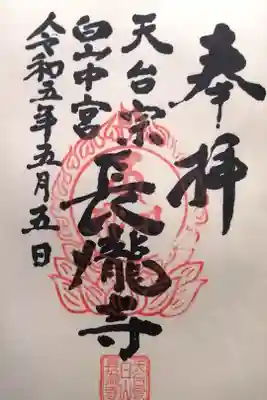 奉拝
天台宗
長瀧寺
白山中宮
令和五年五月五日